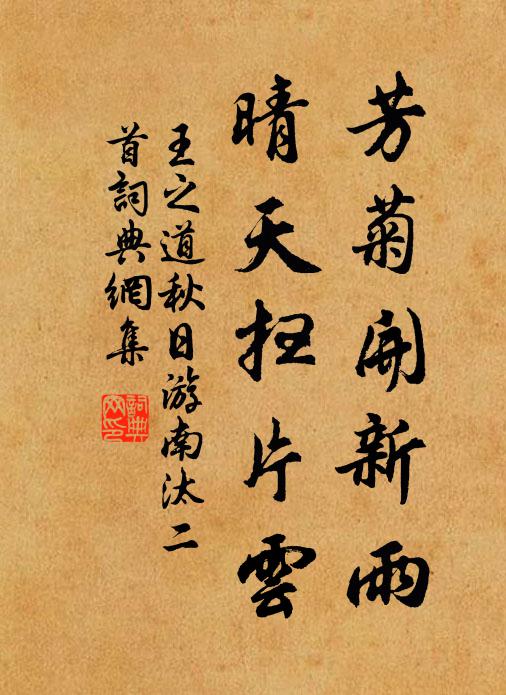 芳菊開新雨
晴天扫片雲
王之道秋日游南汰二
首詞典網集
詞典
网印